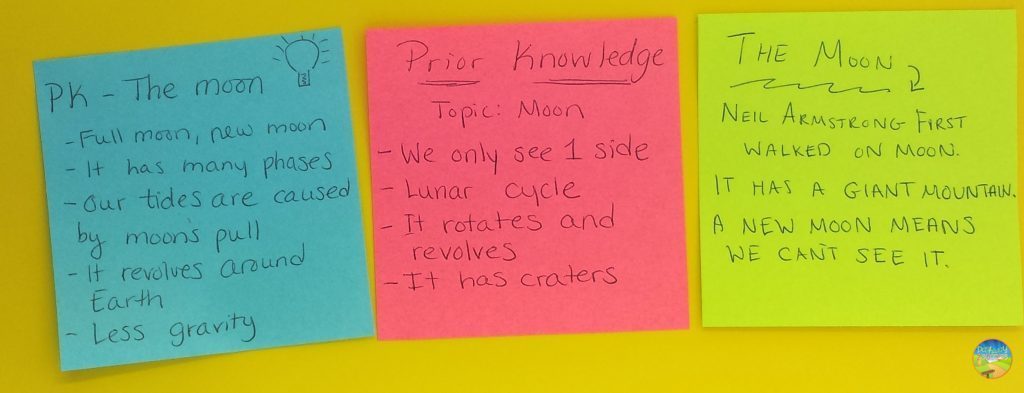 PK - The moon
- Full moon, new moon
- It has many phases
- Our tides are caused
by moon's pull
- It revolves around
Earth
- Less gravity
Prior Knowledge
Topic: Moon
- We only see 1 side
- Lunar cycle
- It rotates and
revolves
- It has craters
THE MOON
NEIL ARMSTRONG FIRST
WALKED ON MOON.
IT HAS A GIANT MOUNTAIN.
A NEW MOON MEANS
WE CAN'T SEE IT.